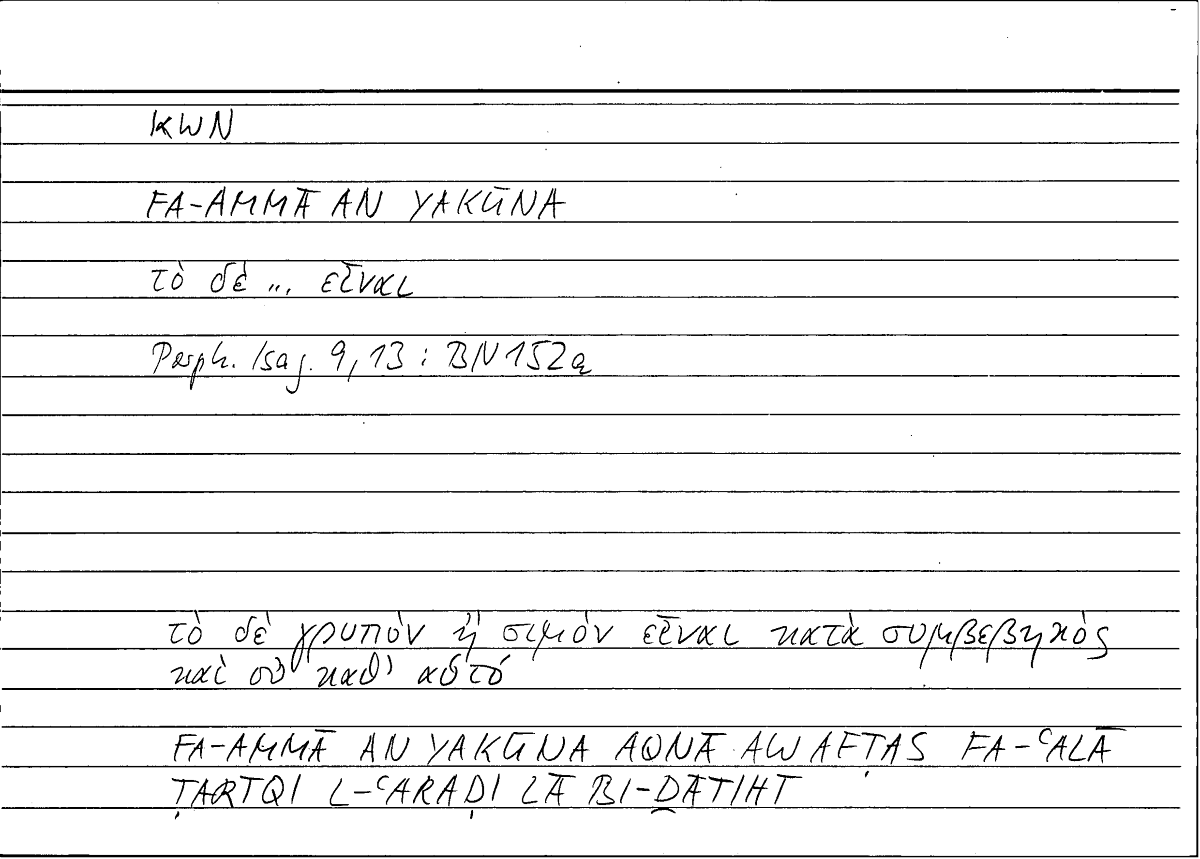 KWN
FA-AMMĀ AN YAKŪNA
τὸ δὲ ... εἶναι
Porph. Isag. 9,13 : BN 152a
τὸ δὲ γρυπὸν ἢ σιμὸν εἶναι κατὰ συμβεβηκὸς
καὶ οὐ καθ' αὑτό
FA-AMMĀ AN YAKŪNA AQNĀ AW AFṬAS FA-ʿALĀ
ṬARĪQI L-ʿARAḌI LĀ BI-ḎĀTIHĪ